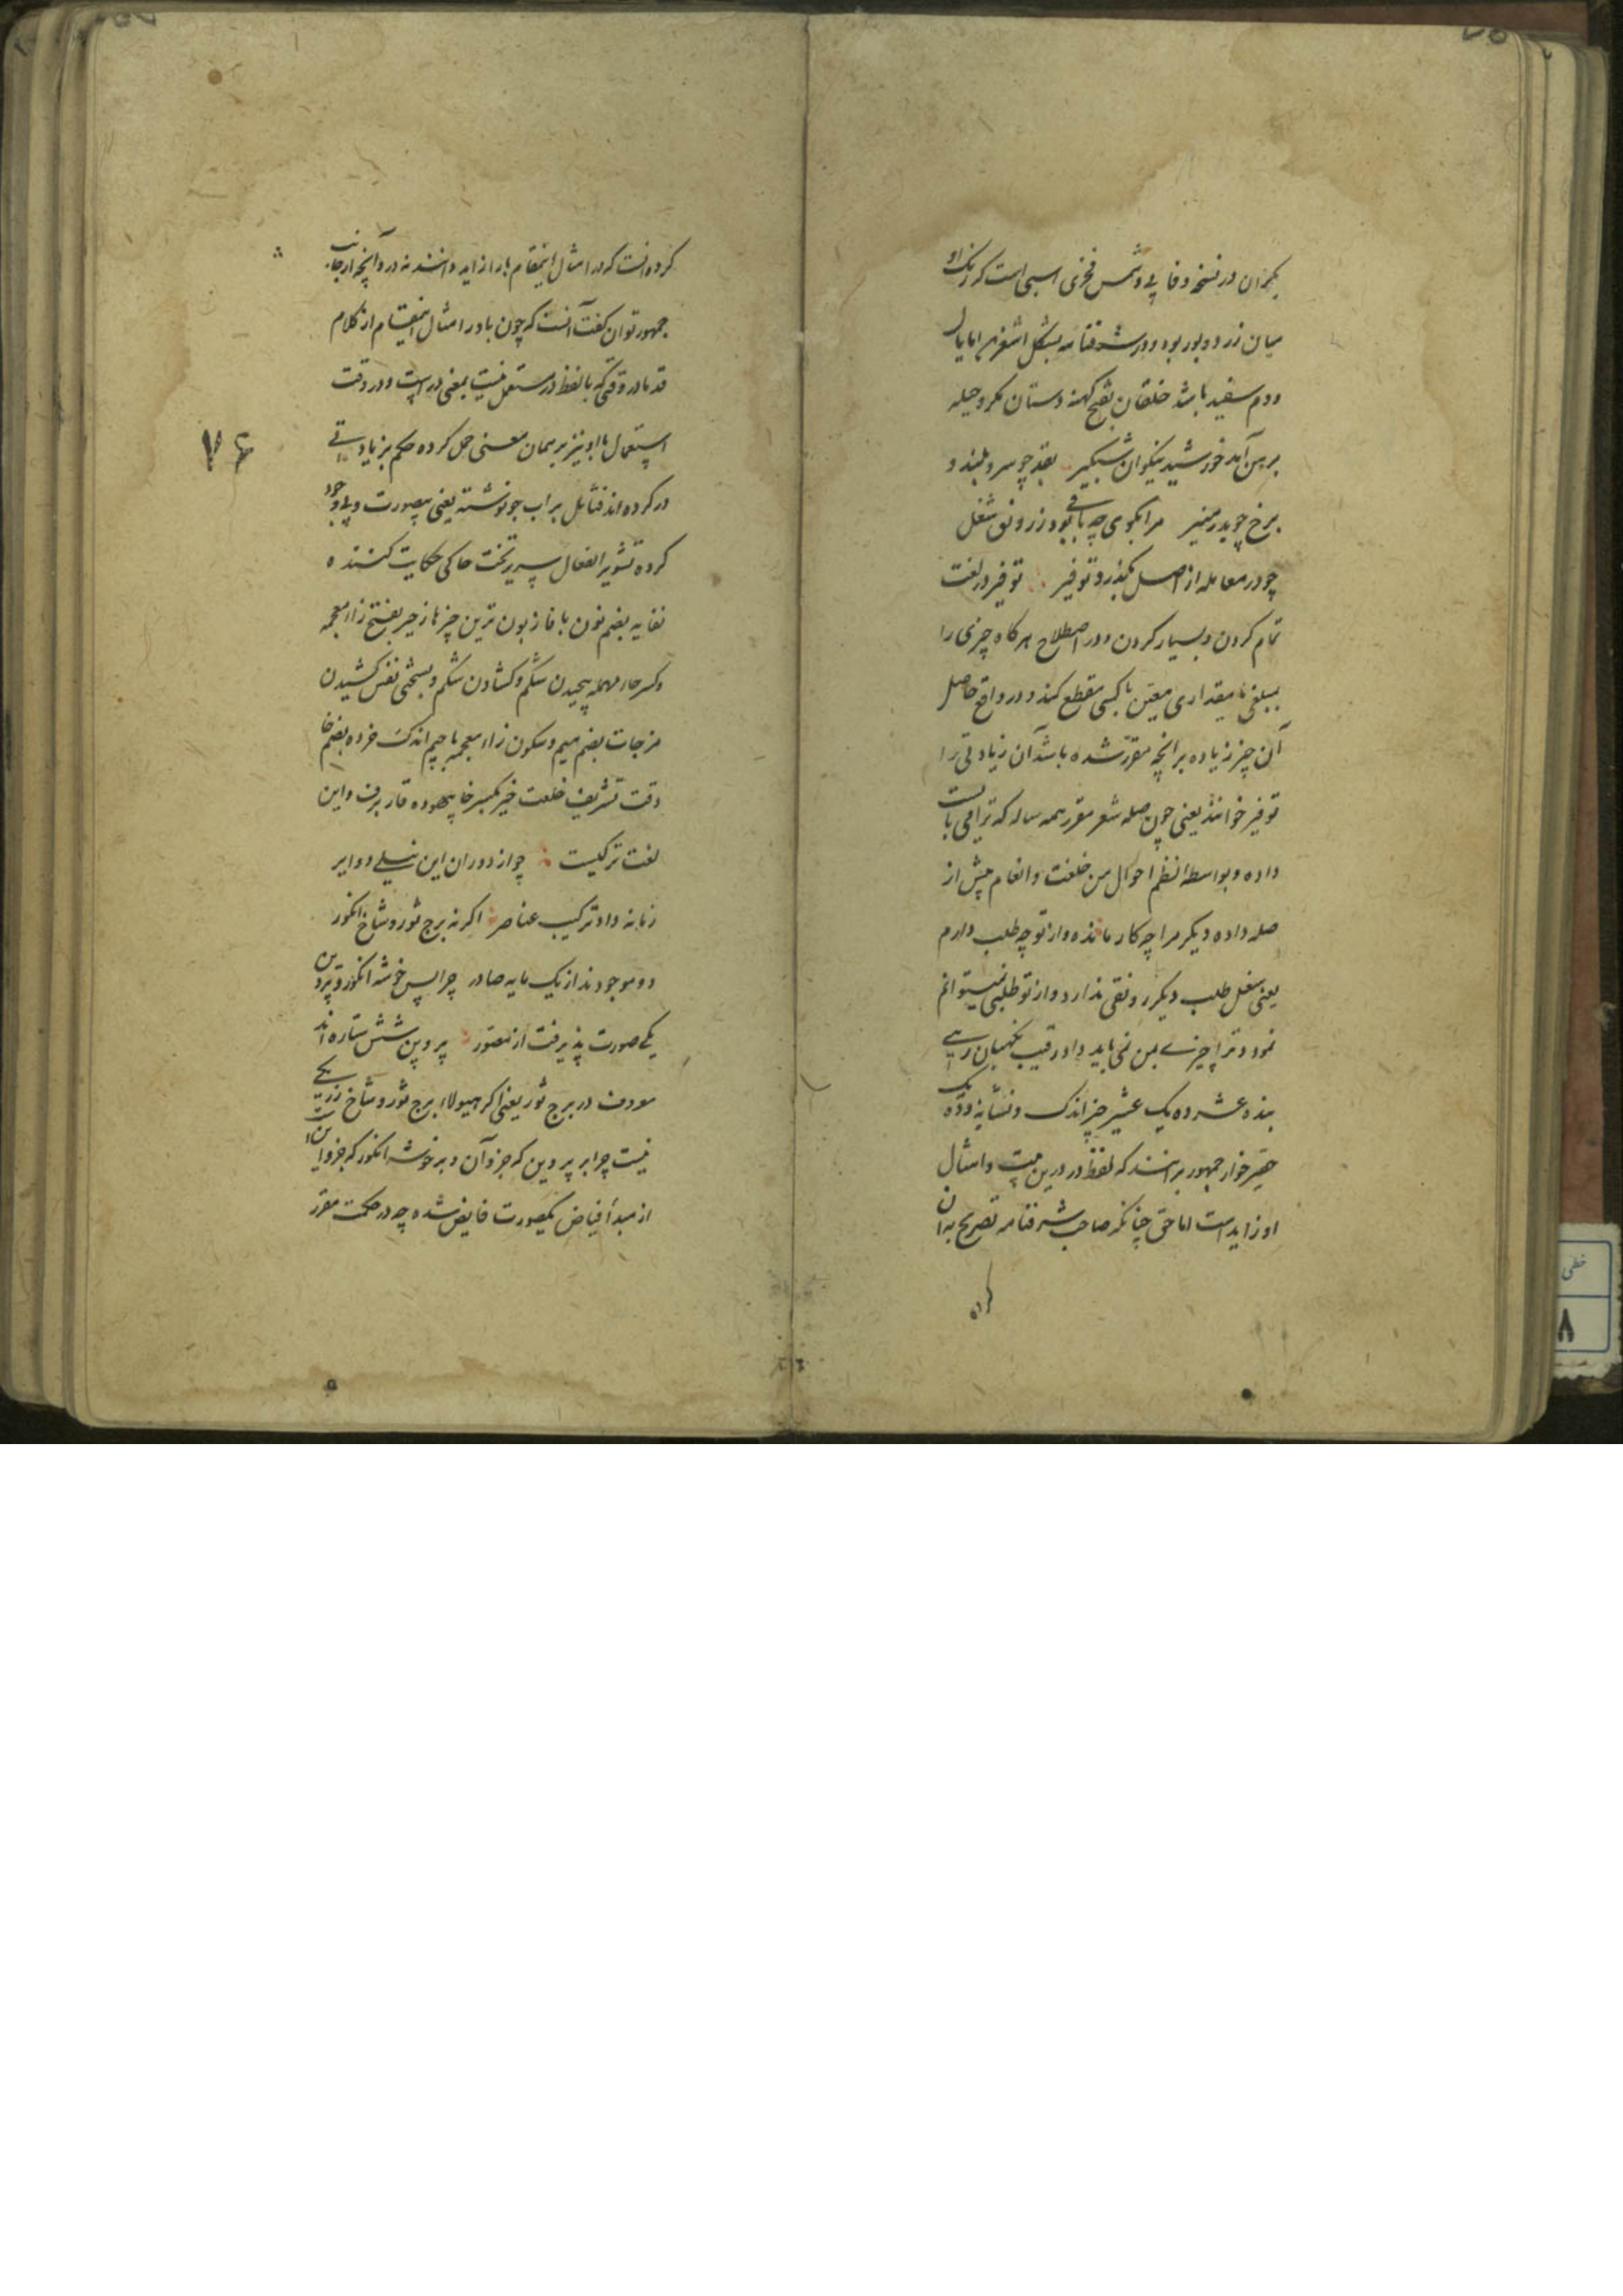 یکران در نسخه وفایی و شمس فخری اسبی است که رنک او
میان زرد و بور بود و در شرفنامه بشکل اشقر اما یال
و دم سفید باشد خلقان بفتح کهنه دستان مکر و حیله
برین آمد خورشید نیکوان شبکیر بقد چو سرو بلند و
برخ چو بدر منیر مرا بکوی چه باقی بود ز رونق شغل
چو در معامله از اصل بگذرد توفیر توفیر در لغت
تمام کردن و بسیار کردن و در اصطلاح هرکاه چیزی را
بمبلغی یا مقداری معین با کسی مقطع کنند و در واقع حاصل
آن چیز زیاده بر آنچه مقرر شده باشد آن زیادتی را
توفیر خوانند یعنی چون صله شعر مقرر همه ساله که ترا می بایست
داده و بواسطه نظم احوال من خلعت و انعام بیش از
صله داده دیکر مرا چه کار مانده و از تو چه طلب دارم
یعنی شغل طلب دیکر رونقی ندارد و از تو طلبی نمیتوانم
نمود و ترا چیزی بمن نمی باید داد رقیب نکهبان رهی
بنده عشر ده یک عشیر چیز اندک و نشانه و ده یک
حقیر خوار جمهور برانند که لفظ در درین بیت و امثال
او زاید است اما حق چنانکه صاحب شرفنامه تصریح بدان
کرده
کرده انست که در امثال اینمقام با را زاید دانند نه در و آنچه از جانب
جمهور توان کفت آنست که چون با در امثال اینمقام از کلام
قدما در وقتی که با لفظ در مستعمل نیست بمعنی در است و در وقت
استعمال با او نیز بر همان معنی حمل کرده حکم بزیادتی
در کرده اند فتابل بر اب جو نوشته یعنی بیصورت و بی وجود
کرده تشویر انفعال سریر تخت حاکی حکایت کننده
نفایه بضم نون با فا زبون ترین چیزها زحیر بفتح زاء معجمه
و کسر حاء مهمله پیچیدن شکم و کشادن شکم و بسختی نفس کشیدن
مزجات بضم میم و سکون زاء معجمه با جیم اندک خرده بضم خا
دقت تشریف خلعت خیر بکسر خا بیهوده قار برف و این
لغت ترکیست چو از دوران این نیلی دوایر
زمانه داد ترکیب عناصر اکر نه برج ثور و شاخ انکور
دو موجودند از یک مایه صادر چرا پس خوشه انکور و پروین
یکی صورت پذیرفت از مصور پروین شش ستاره اند
معروف در برج ثور یعنی اکر هیولاء برج ثور و شاخ رز یکی
نیست چرا بر پروین که جزو آن و بر خوشه انکور که جزو این است
از مبدأ فیاض یکصورت فایض شده چه در حکمت مقرر
۷۶